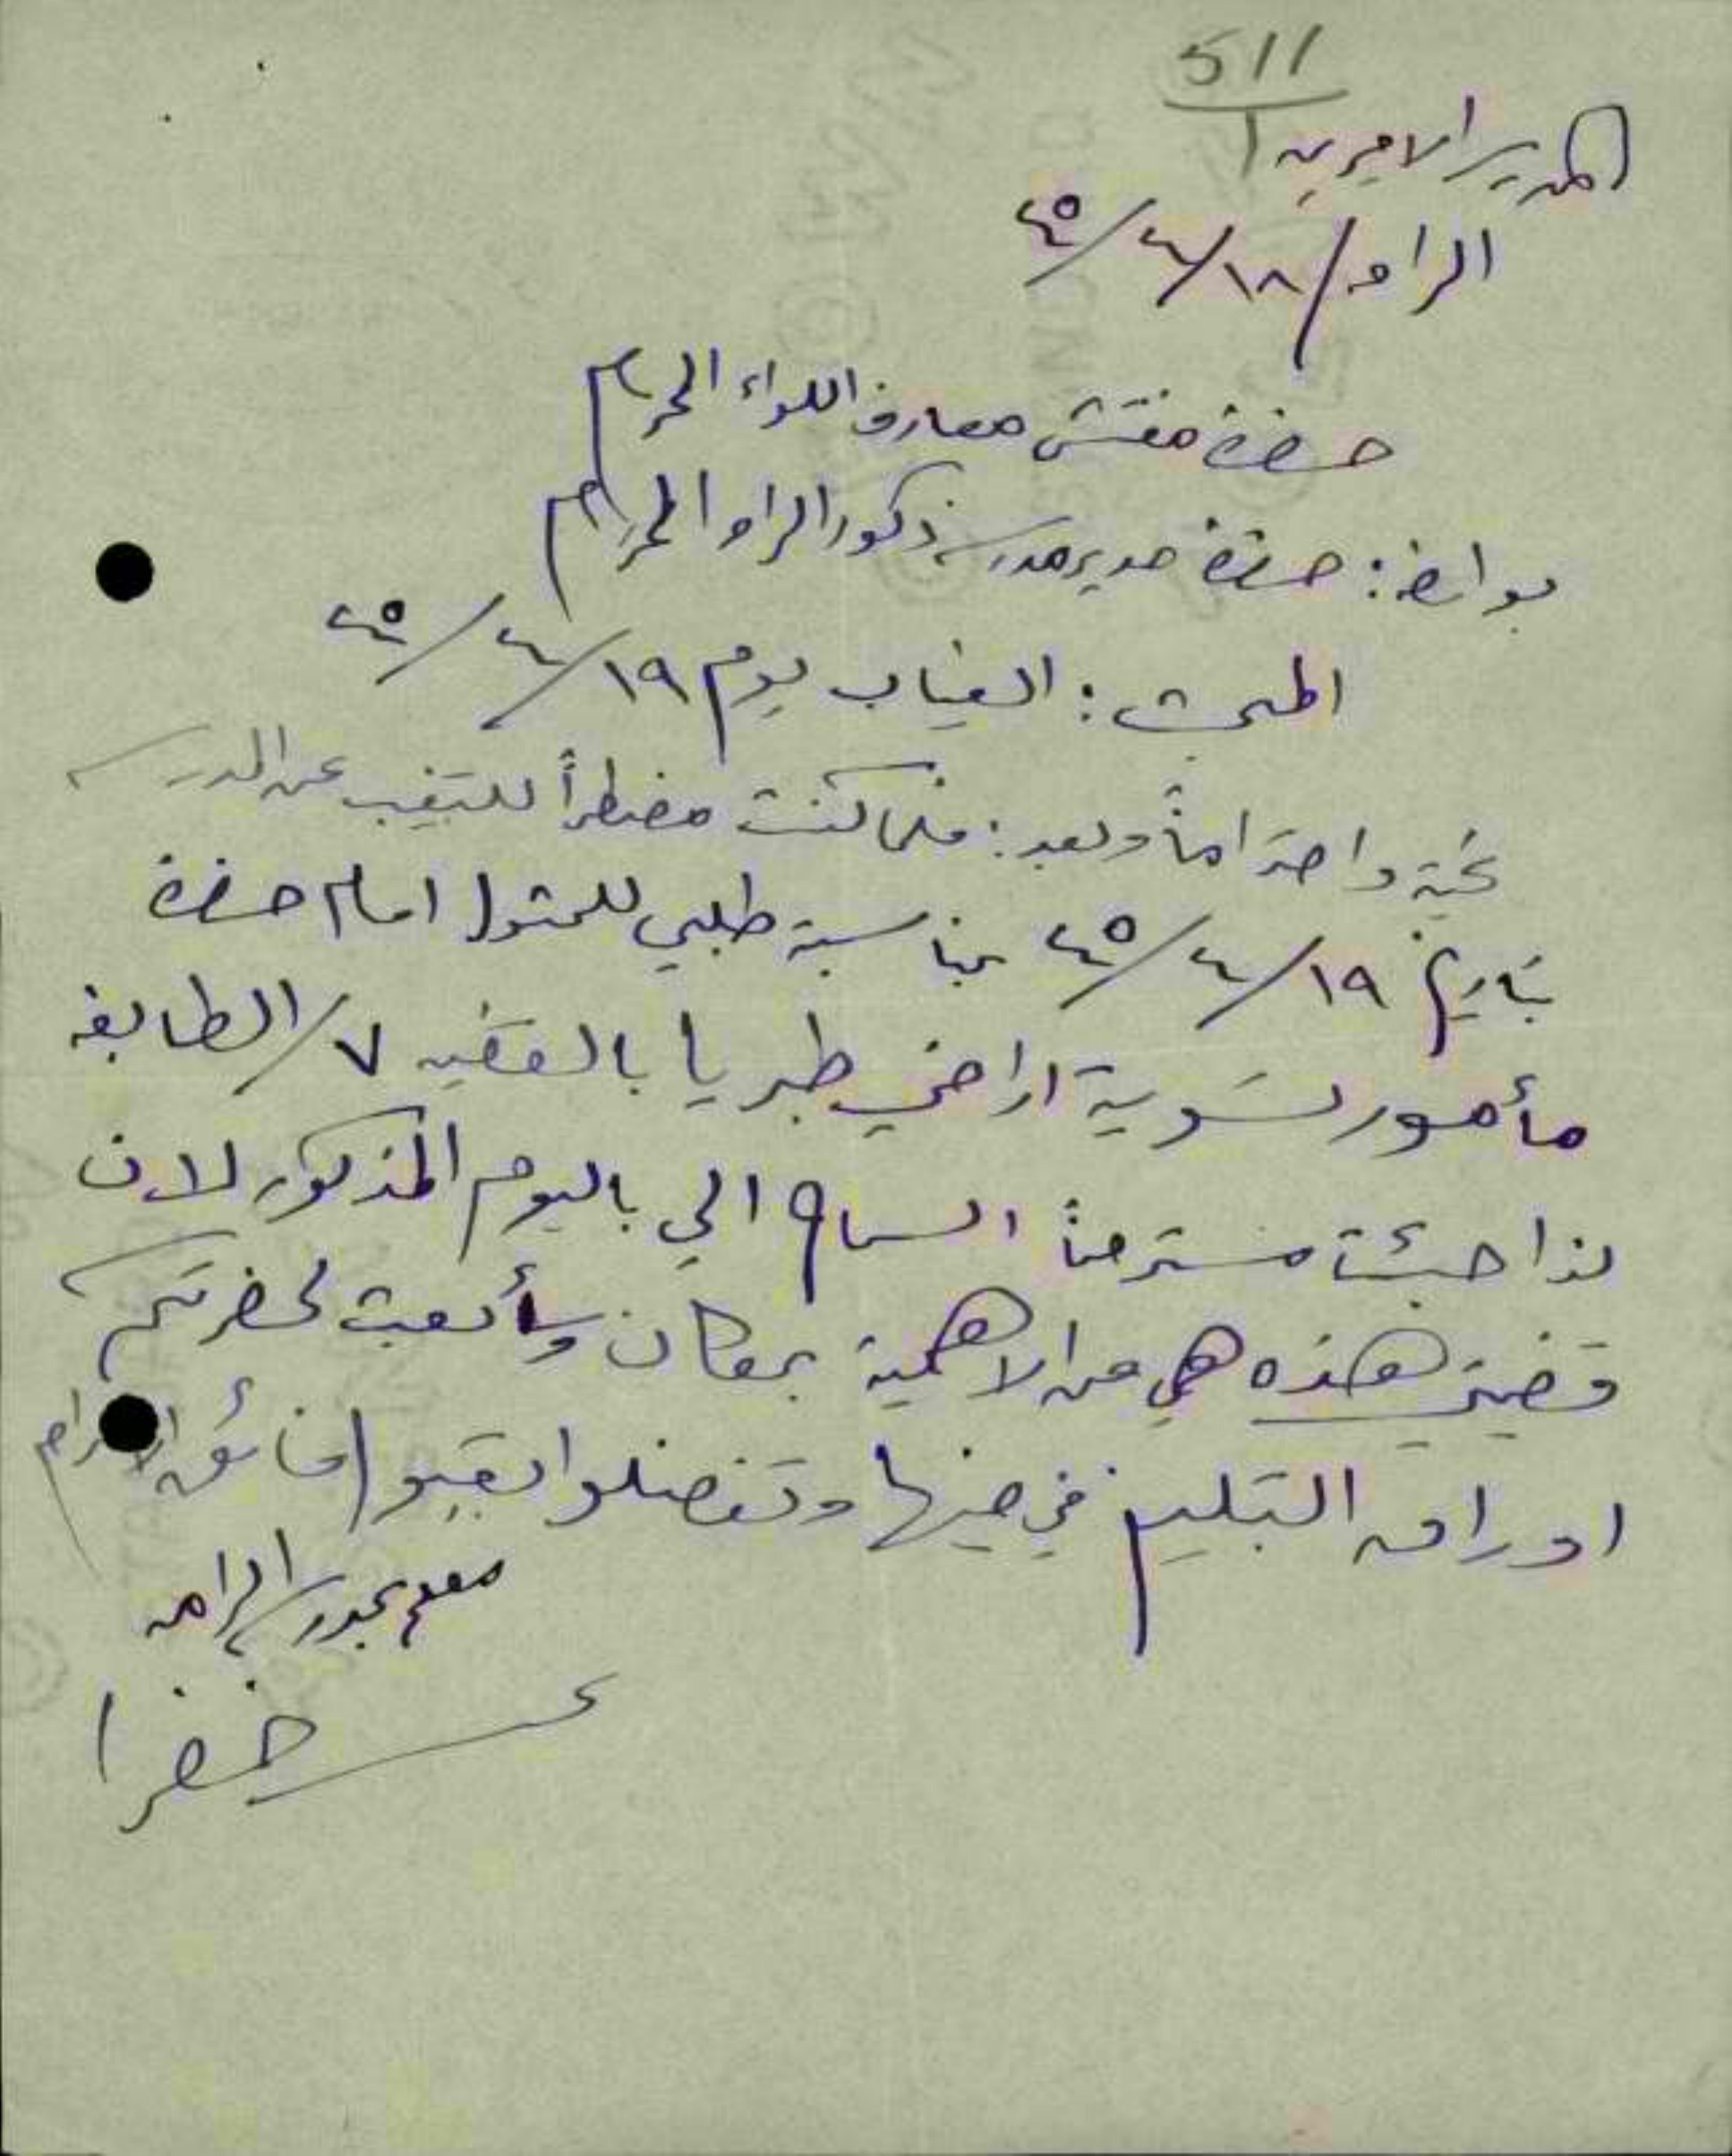 511
1
المدرسة الاميرية
الرامه ١٨/٤/٤٥
حضرة مفتش معارف اللواء المحترم
بواسطة: حضرة مدير مدرسة ذكور الرامه المحترم
المبحث: الغياب يوم ١٩/٤/٤٥
تحية واحتراماً وبعد: فلما كنت مضطراً للتغيب عن المدرسة
بتاريخ ١٩/٤/٤٥ بمناسبة طلبي للمثول امام حضرة
مأمور تسوية اراضي طبريا بالقضية ٧/الطابغه
لذا جئت مسترحماً السماح الي باليوم المذكور لان
قضيتي هذه هي من الاهمية بمكان وسأبعث لحضرتكم
اوراق التبليغ في حينها وتفضلوا بقبول فائق الاحترام
معلم بمدرسة الرامه
خضرا